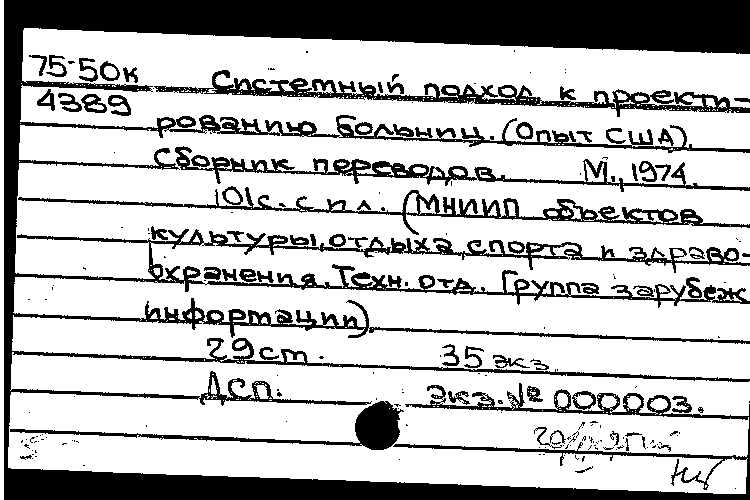 75-50к Системный подход к проекти-
4389 рованию больниц. (Опыт США).
Сборник переводов. М., 1974.
101с. с ил. (МНИИП объектов
культуры, отдыха, спорта и здраво-
охранения. Техн. отд. Группа зарубеж.
информации).
29ст. 35экз.
ДСП. Экз. № 000003.